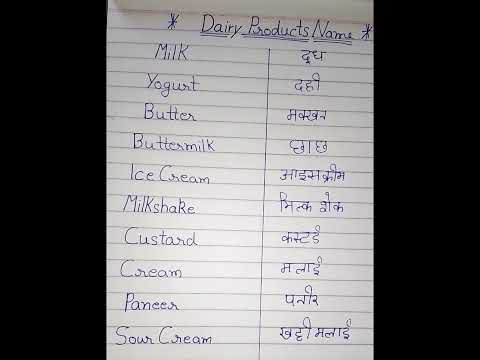 * Dairy Products Name *
Milk दूध
Yogurt दही
Butter मक्खन
Buttermilk छाछ
Ice Cream आइसक्रीम
Milkshake मिल्क शेक
Custard कस्टर्ड
Cream मलाई
Paneer पनीर
Sour Cream खट्टी मलाई